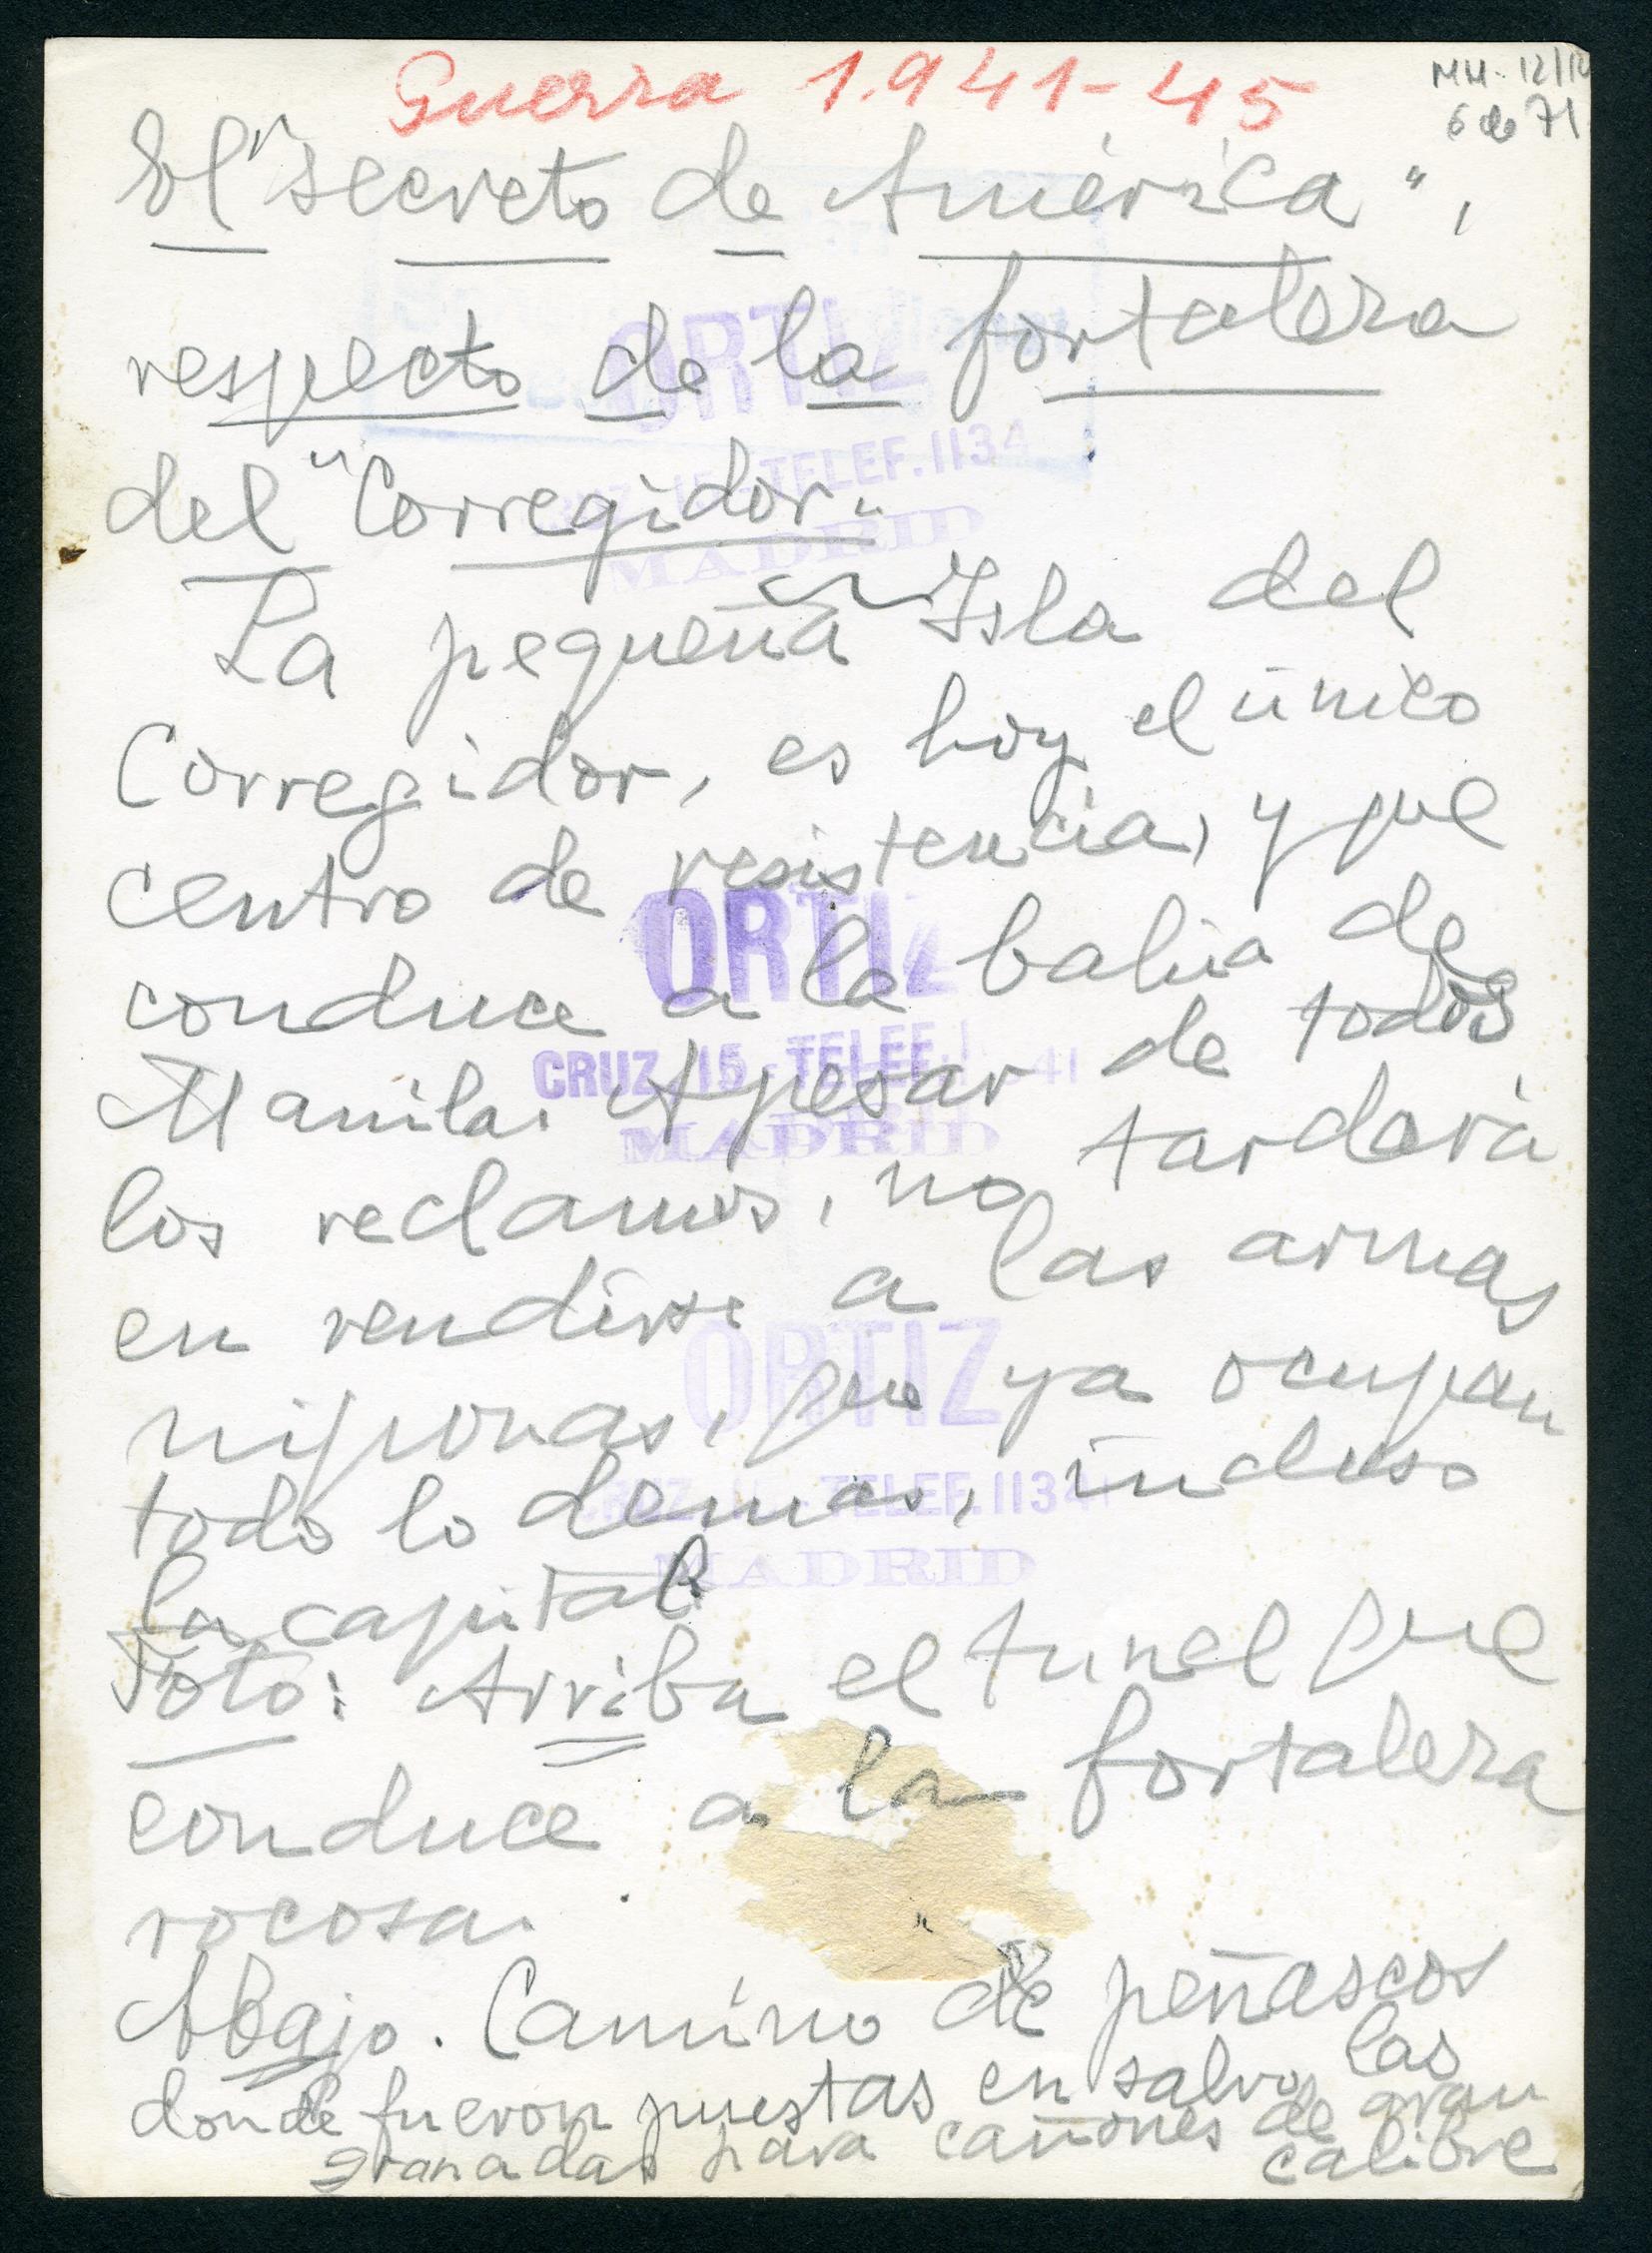 Guerra 1.941-45
MM-12/12
6 de 71
El "secreto de América",
respecto de la fortaleza
del "Corregidor"
La pequeña Isla del
Corregidor, es hoy el único
centro de resistencia, y que
conduce a la bahia de
Manila. Apesar de todos
los reclamos, no tardará
en rendirse a las armas
niponas, que ya ocupan
todo lo demas, incluso
la capital
Foto: Arriba el tunel que
conduce a la fortaleza
rocosa.
Abajo. Camino de peñascos
donde fueron puestas en salvo las
granadas para cañones de gran
calibre
ORTIZ
TELEF. 1134
MADRID
ORTIZ
CRUZ, 15 - TELEF. 1
MADRID
ORTIZ
CRUZ, 15 - TELEF. 1134
MADRID